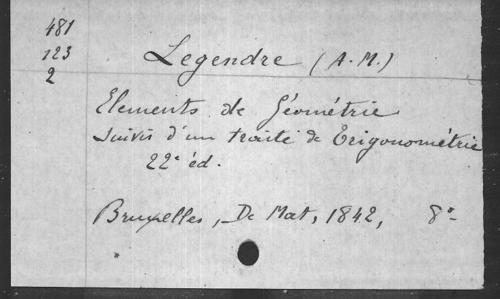 481
123
2
Legendre (A. M.)
Elements de Géométrie
suivis d'un traité de Trigonométrie
22e éd.
Bruxelles, De Mat, 1842, 8o